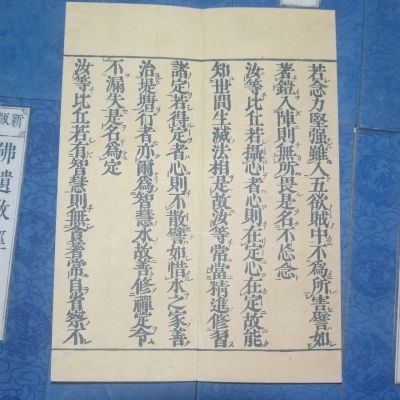 若念力堅强雖入五欲賊中不為所害譬如
著鎧入陣則無所畏是名不忘念
汝等比丘若攝心者心則在定心在定故能
知世間生滅法相是故汝等常當精進修習
諸定若得定者心則不散譬如惜水之家善
治堤塘行者亦爾為智慧水故善修禪定令
不漏失是名為定
汝等比丘若有智慧則無貪著常自省察不
佛遺教經